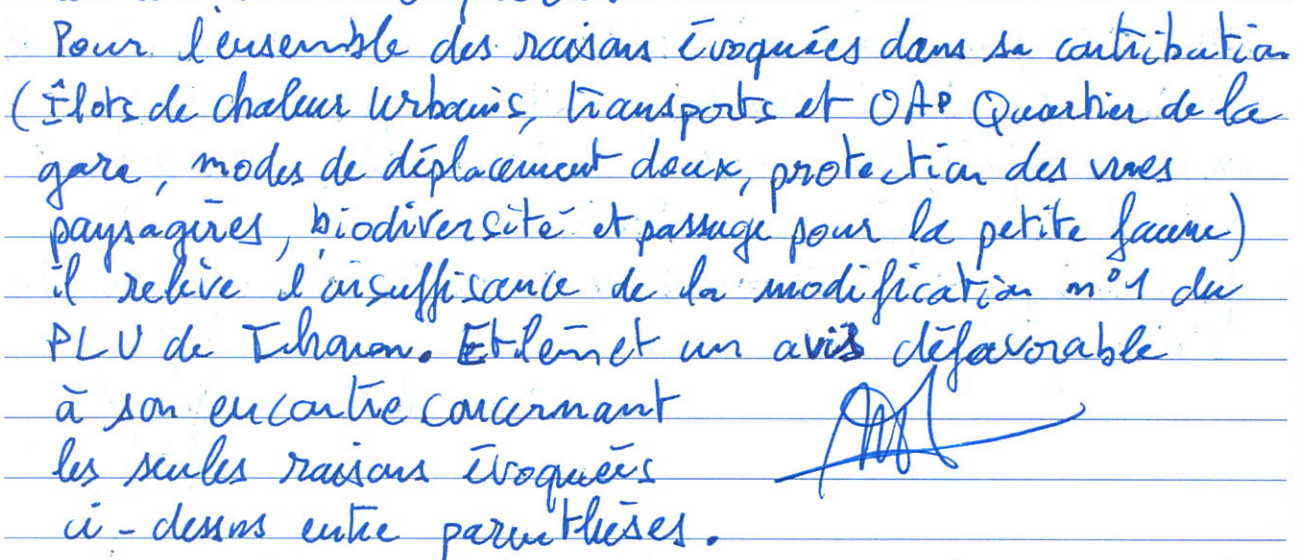 Pour l'ensemble des raisons évoquées dans sa contribution
(Îlots de chaleur urbains, transports et OAP Quartier de la
gare, modes de déplacement doux, protection des vues
paysagères, biodiversité et passage pour la petite faune)
il relève l'insuffisance de la modification n°1 du
PLU de Thouon. Et émet un avis défavorable
à son encontre concernant
les seules raisons évoquées
ci-dessus entre parenthèses.